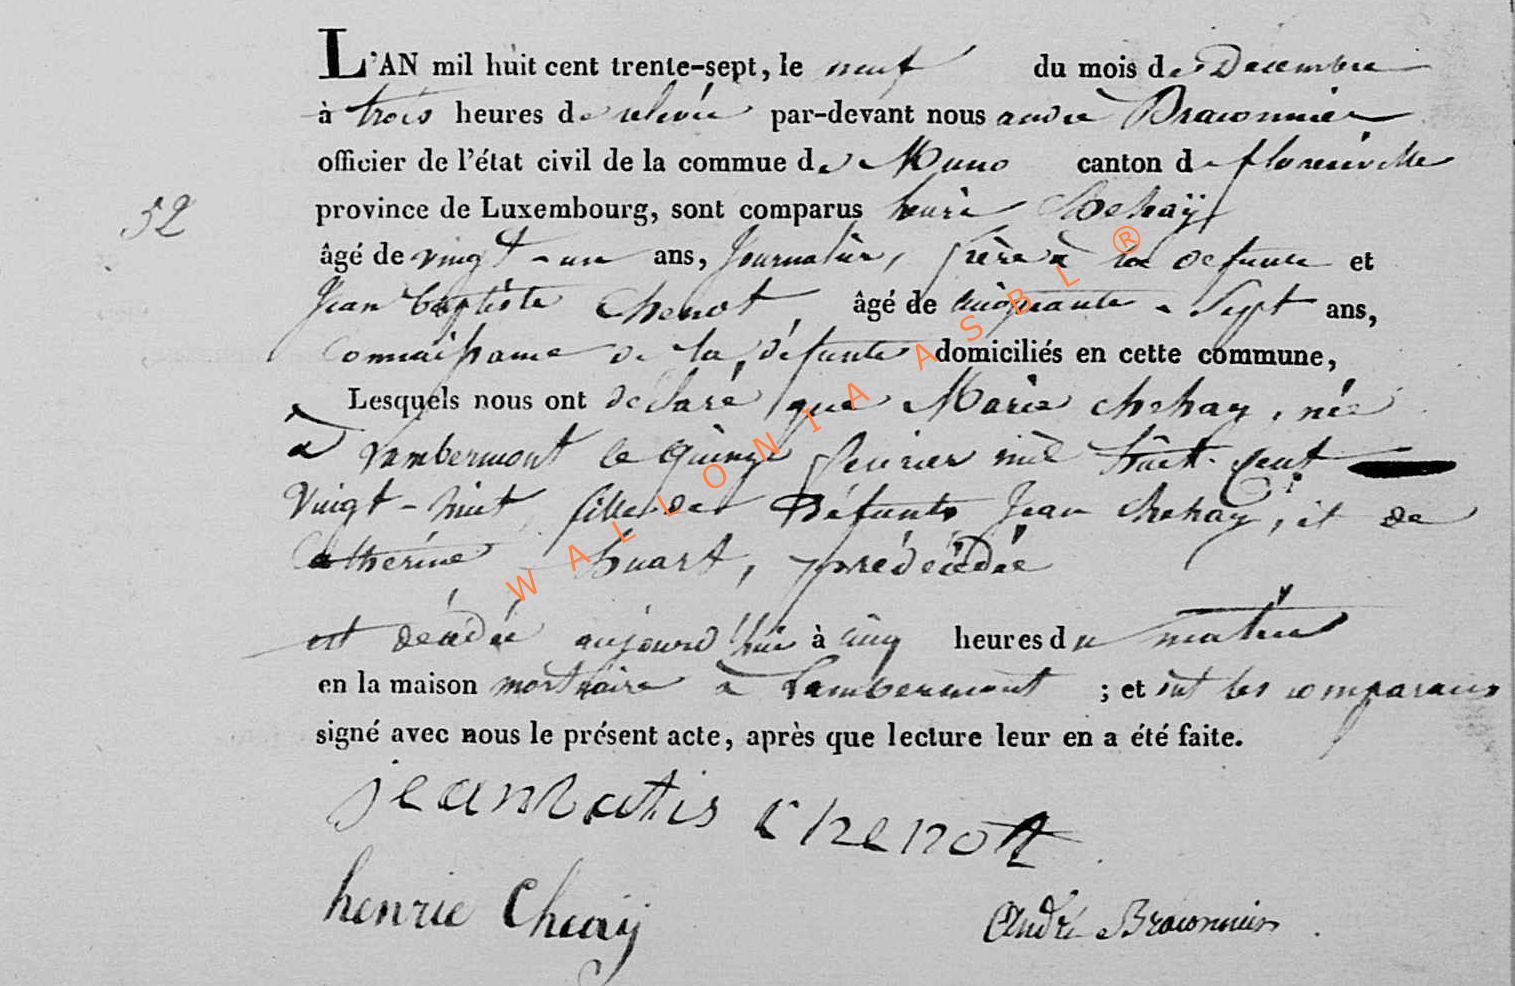 L'AN mil huit cent trente-sept, le neuf du mois de Decembre
à trois heures de relevée par-devant nous andré Braconnier
officier de l'état civil de la commue de Muno canton de florenville
52
province de Luxembourg, sont comparus henri Chehaÿ
âgé de vingt-un ans, Journalier, frère à la defunte et
Jean baptiste Chenot âgé de cinquante-Sept ans,
Connaissance de la défunte domiciliés en cette commune,
Lesquels nous ont déclaré que Marie chehay, née
à Lambermont le quinze fevrier mil huit-cent
Vingt-huit fille de Défunts Jean chehay, et de
Catherine huart, prédécédée
est décédée aujourd'hui à cinq heures du matin
en la maison mortuaire à Lambermont ; et ont les comparans
signé avec nous le présent acte, après que lecture leur en a été faite.
jeanbatis chenot
henrie Cheaÿ
André Braconnier
WALLONIA ASBL ®